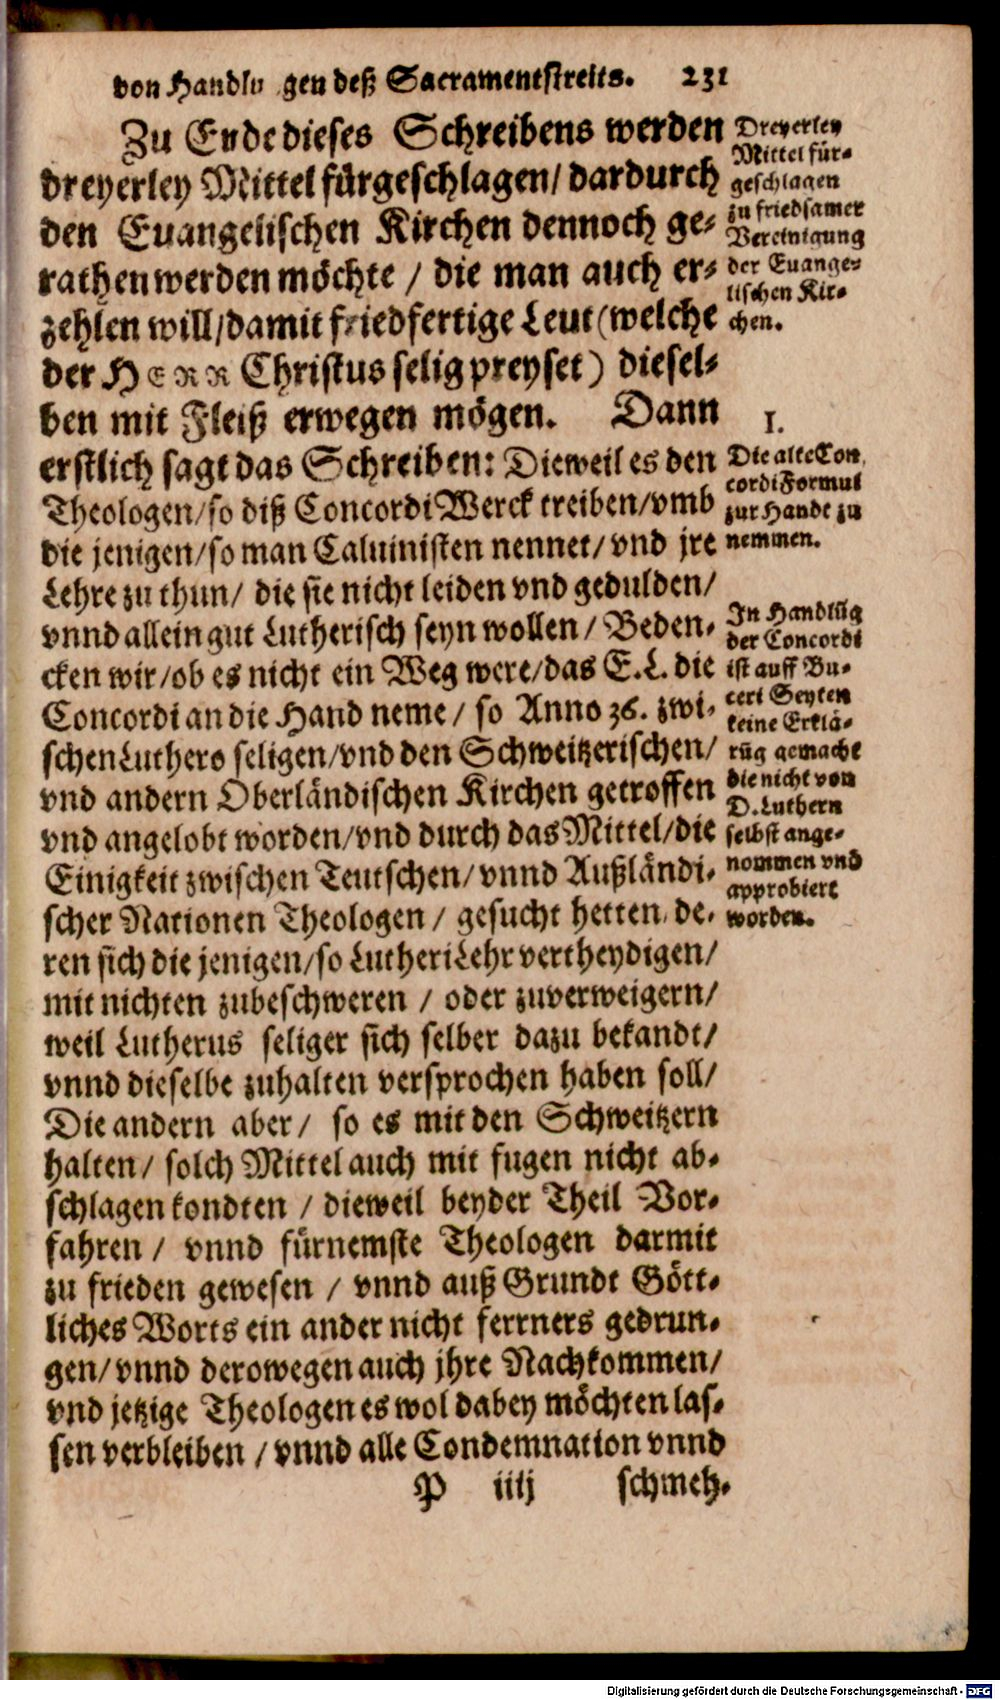 von Handlu gen deß Sacramentstreits. 231
Zu Ende dieses Schreibens werden
dreyerley Mittel fürgeschlagen/ dardurch
den Euangelischen Kirchen dennoch ge-
rathen werden möchte / die man auch er-
zehlen will/damit friedfertige Leut (welche
der HERR Christus selig preyset) diesel-
ben mit Fleiß erwegen mögen. Dann
erstlich sagt das Schreiben: Dieweil es den
Theologen/so diß Concordi Werck treiben/vmb
die jenigen/so man Caluinisten nennet/ vnd jre
Lehre zu thun/ die sie nicht leiden vnd gedulden/
vnnd allein gut Lutherisch seyn wollen/ Beden-
cken wir/ob es nicht ein Weg were/das E.L. die
Concordi an die Hand neme/ so Anno 36. zwi-
schen Luthero seligen/vnd den Schweitzerischen/
vnd andern Oberländischen Kirchen getroffen
vnd angelobt worden/vnd durch das Mittel/die
Einigkeit zwischen Teutschen/ vnnd Außländi-
scher Nationen Theologen / gesucht hetten, de-
ren sich die jenigen/so Lutheri Lehr vertheydigen/
mit nichten zubeschweren / oder zuverweigern/
weil Lutherus seliger sich selber dazu bekandt/
vnnd dieselbe zuhalten versprochen haben soll/
Die andern aber/ so es mit den Schweitzern
halten/ solch Mittel auch mit fugen nicht ab-
schlagen kondten / dieweil beyder Theil Vor-
fahren / vnnd fürnemste Theologen darmit
zu frieden gewesen / vnnd auß Grundt Gött-
liches Worts ein ander nicht ferrners gedrun-
gen/ vnnd derowegen auch jhre Nachkommen/
vnd jetzige Theologen es wol dabey möchten las-
sen verbleiben / vnnd alle Condemnation vnnd
P iiij schmeh-
Dreyerley
Mittel für-
geschlagen
zu friedsamer
Vereinigung
der Euange-
lischen Kir-
chen.
I.
Die alte Con
cordi Formul
zur Handt zu
nemmen.
In Handlūg
der Concordi
ist auff Bu-
ceri Seyten
keine Erklä-
rūg gemacht
die nicht von
D. Luthern
selbst ange-
nommen vnd
approbiert
worden.
Digitalisierung gefördert durch die Deutsche Forschungsgemeinschaft - DFG